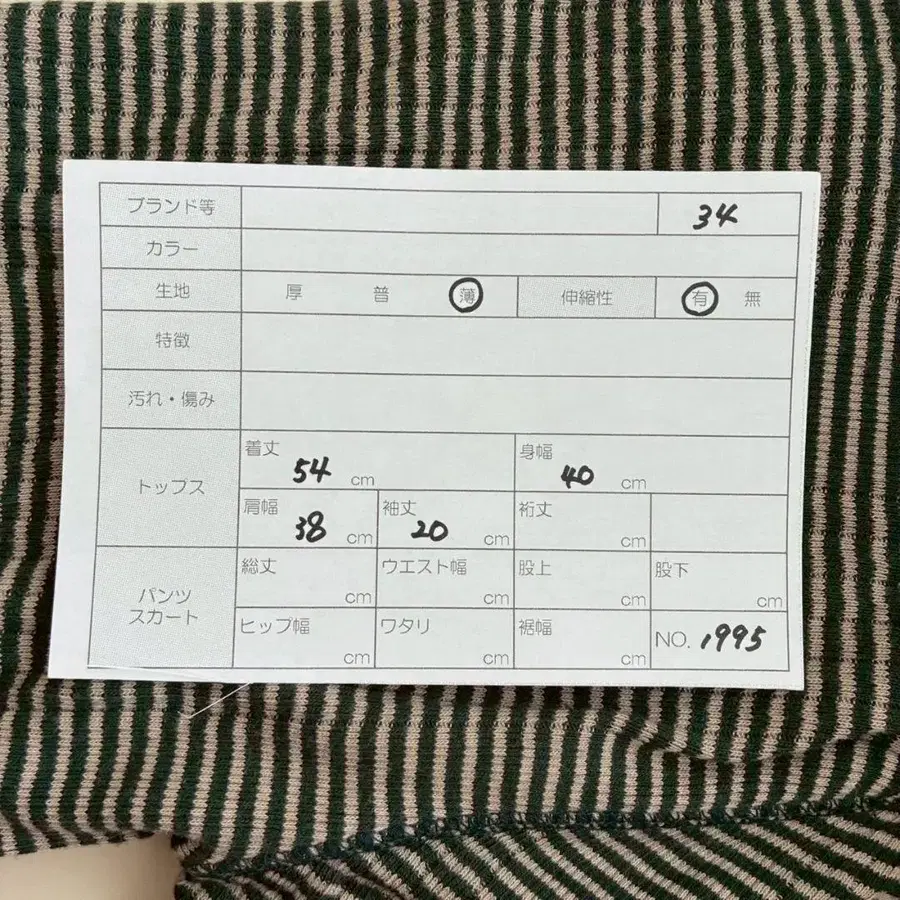 ブランド等 34
カラー
生地 厚 普 薄 伸縮性 有 無
特徴
汚れ・傷み
トップス
着丈 54 cm 身幅 40 cm
肩幅 38 cm 袖丈 20 cm 裄丈 cm
パンツ
スカート
総丈 cm ウエスト幅 cm 股上 cm 股下 cm
ヒップ幅 cm ワタリ cm 裾幅 cm NO. 1995